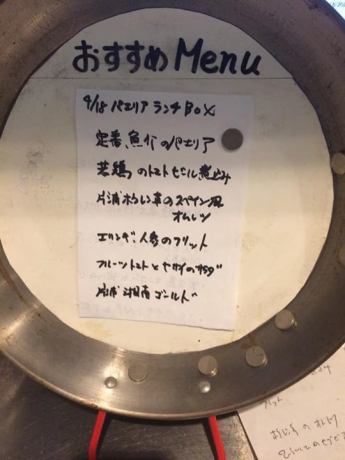 おすすめ Menu
9/18 パエリア ランチ BOX
定番、魚介のパエリア
若鶏のトマトビール煮込み
片浦 の スペイン風
オムレツ
エリンギ、人参のフリット
フルーツトマトと の
片浦 湘南ゴールド